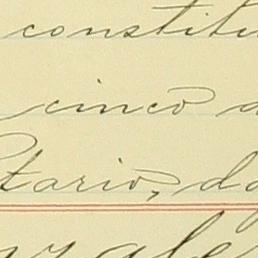 constitu
cinco d
tario, da